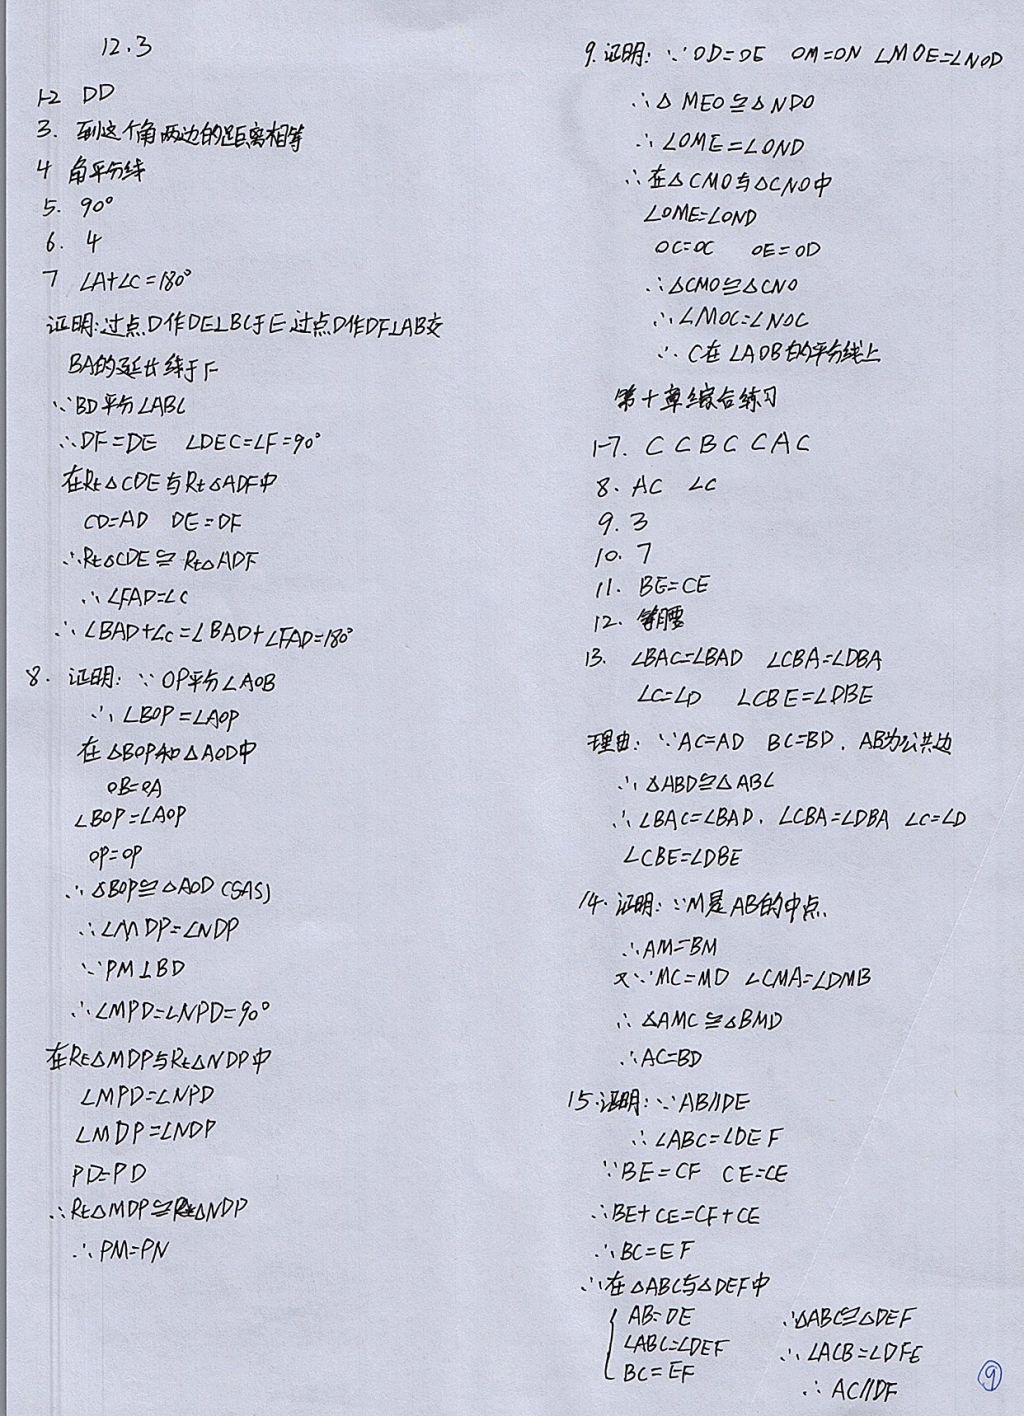 12.3
1-2 DD
3. 到这个角两边的距离相等
4 角平分线
5. 90°
6. 4
7 ∠A+∠C=180°
证明:过点D作DE⊥BC于E 过点D作DF⊥AB交
BA的延长线于F
∵BD平分∠ABC
∴DF=DE ∠DEC=∠F=90°
在Rt△CDE与Rt△ADF中
CD=AD DE=DF
∴Rt△CDE≌Rt△ADF
∴∠FAD=∠C
∴∠BAD+∠C=∠BAD+∠FAD=180°
8. 证明: ∵OP平分∠AOB
∴∠BOP=∠AOP
在△BOP和△AOD中
OB=OA
∠BOP=∠AOP
OP=OP
∴△BOP≌△AOD (SAS)
∴∠MDP=∠NDP
∵PM⊥BD
∴∠MPD=∠NPD=90°
在Rt△MDP与Rt△NDP中
∠MPD=∠NPD
∠MDP=∠NDP
PD=PD
∴Rt△MDP≌Rt△NDP
∴PM=PN
9.证明: ∵OD=OE OM=ON ∠MOE=∠NOD
∴△MEO≌△NDO
∴∠OME=∠OND
∴在△CMO与△CNO中
∠OME=∠OND
OC=OC OE=OD
∴△CMO≌△CNO
∴∠MOC=∠NOC
∴C在∠AOB的平分线上
第十章综合练习
1-7. C C B C C A C
8. AC ∠C
9. 3
10. 7
11. BE=CE
12. 等腰
13. ∠BAC=∠BAD ∠CBA=∠DBA
∠C=∠D ∠CBE=∠DBE
理由: ∵AC=AD BC=BD. AB为公共边
∴△ABD≌△ABC
∴∠BAC=∠BAD. ∠CBA=∠DBA ∠C=∠D
∠CBE=∠DBE
14. 证明: ∵M是AB的中点.
∴AM=BM
又∵MC=MD ∠CMA=∠DMB
∴△AMC≌△BMD
∴AC=BD
15.证明: ∵AB∥DE
∴∠ABC=∠DEF
∵BE=CF CE=CE
∴BE+CE=CF+CE
∴BC=EF
∴在△ABC与△DEF中
AB=DE ∴△ABC≌△DEF
∠ABC=∠DEF ∴∠ACB=∠DFE
BC=EF ∴AC∥DF
9